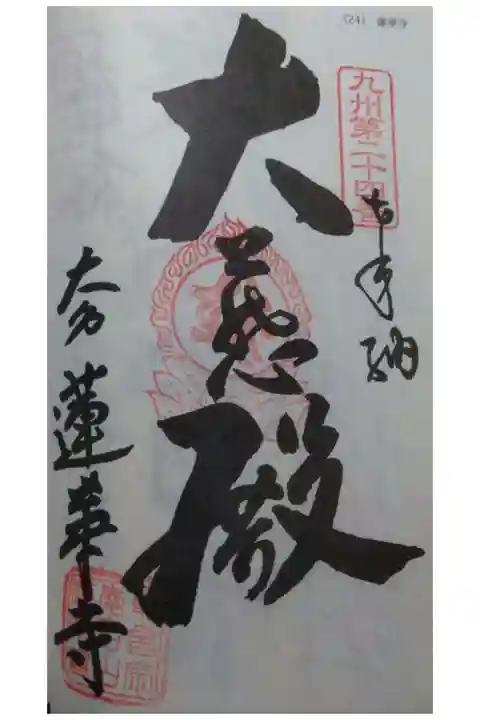 (24) 蓮華寺
九州第二十四番
奉納
大慈殿
大分 蓮華寺